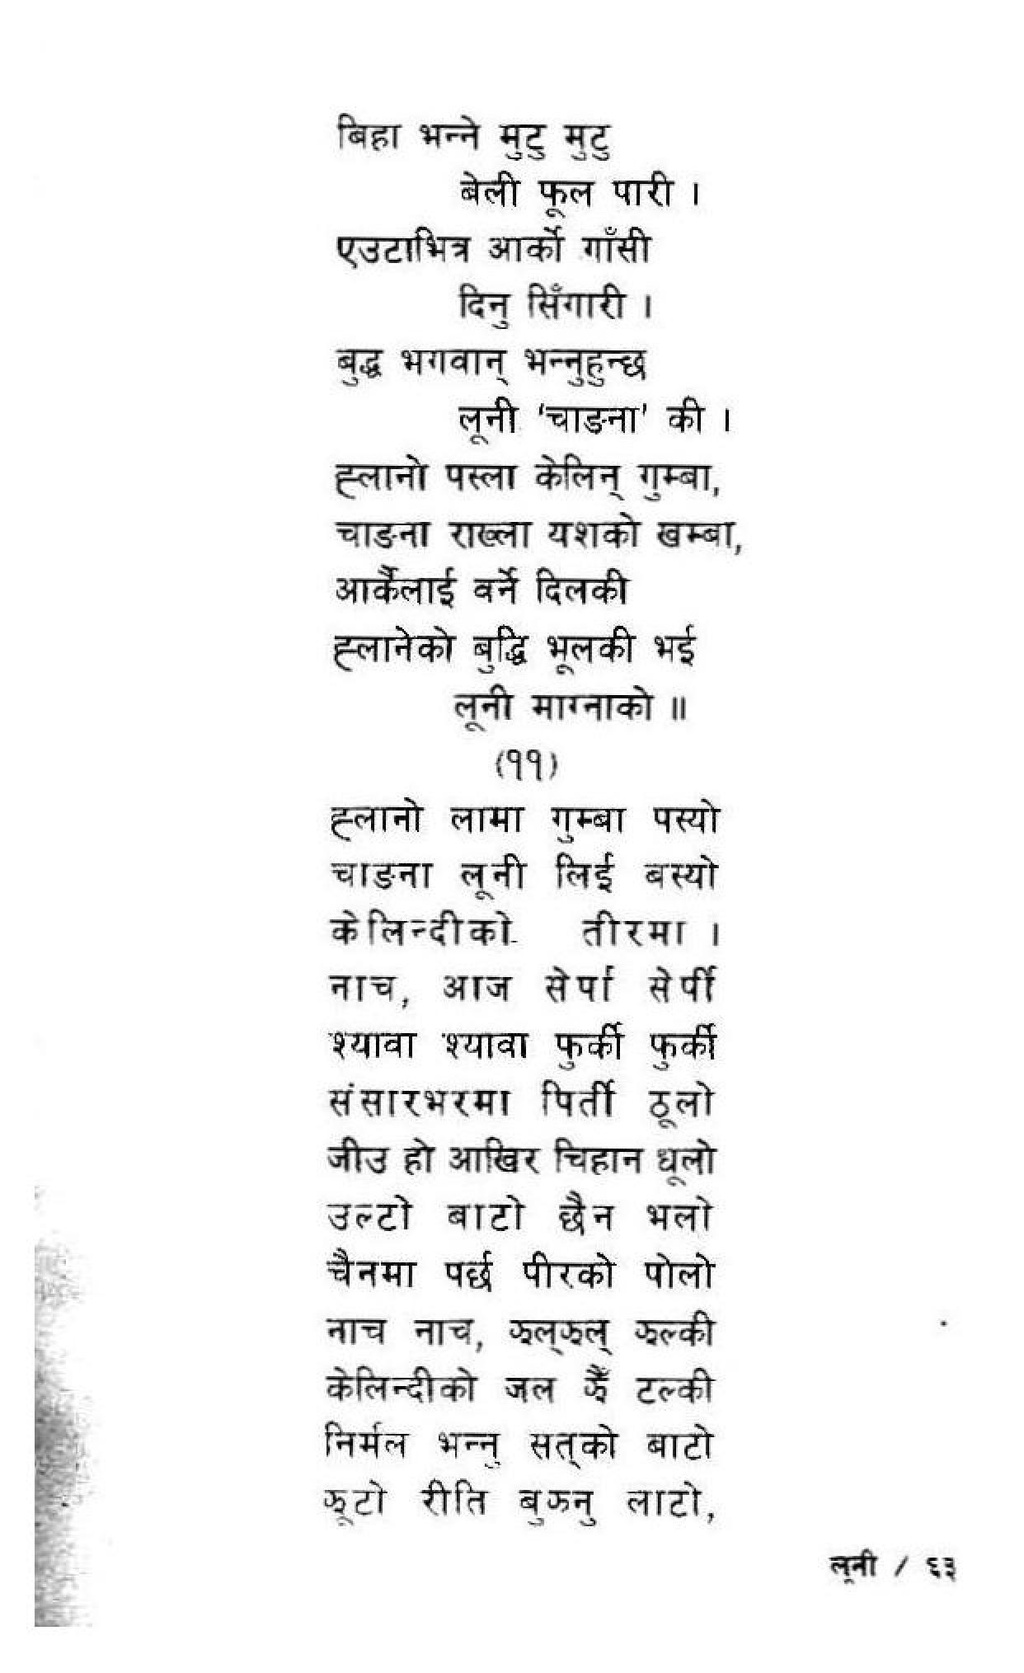 बिहा भन्ने मुटु मुटु
बेली फूल पारी ।
एउटाभित्र आर्को गाँसी
दिनु सिँगारी ।
बुद्ध भगवान् भन्नुहुन्छ
लूनी ‘चाङना’ की ।
ह्लानो पस्ला केलिन् गुम्बा,
चाङना राख्ला यशको खम्बा,
आर्कैलाई वर्ने दिलकी
ह्लानेको बुद्धि भूलकी भई
लूनी माग्नाको ॥
(११)
ह्लानो लामा गुम्बा पस्यो
चाङना लूनी लिई बस्यो
केलिन्दीको तीरमा ।
नाच, आज सेर्पा सेर्पी
श्यावा श्यावा फुर्की फुर्की
संसारभरमा पिर्ती ठूलो
जीउ हो आखिर चिहान धूलो
उल्टो बाटो छैन भलो
चैनमा पर्छ पीरको पोलो
नाच नाच, झल्झल् झल्की
केलिन्दीको जल झैँ टल्की
निर्मल भन्नु सत्को बाटो
झूटो रीति बुझ्नु लाटो,
लूनी / ६३